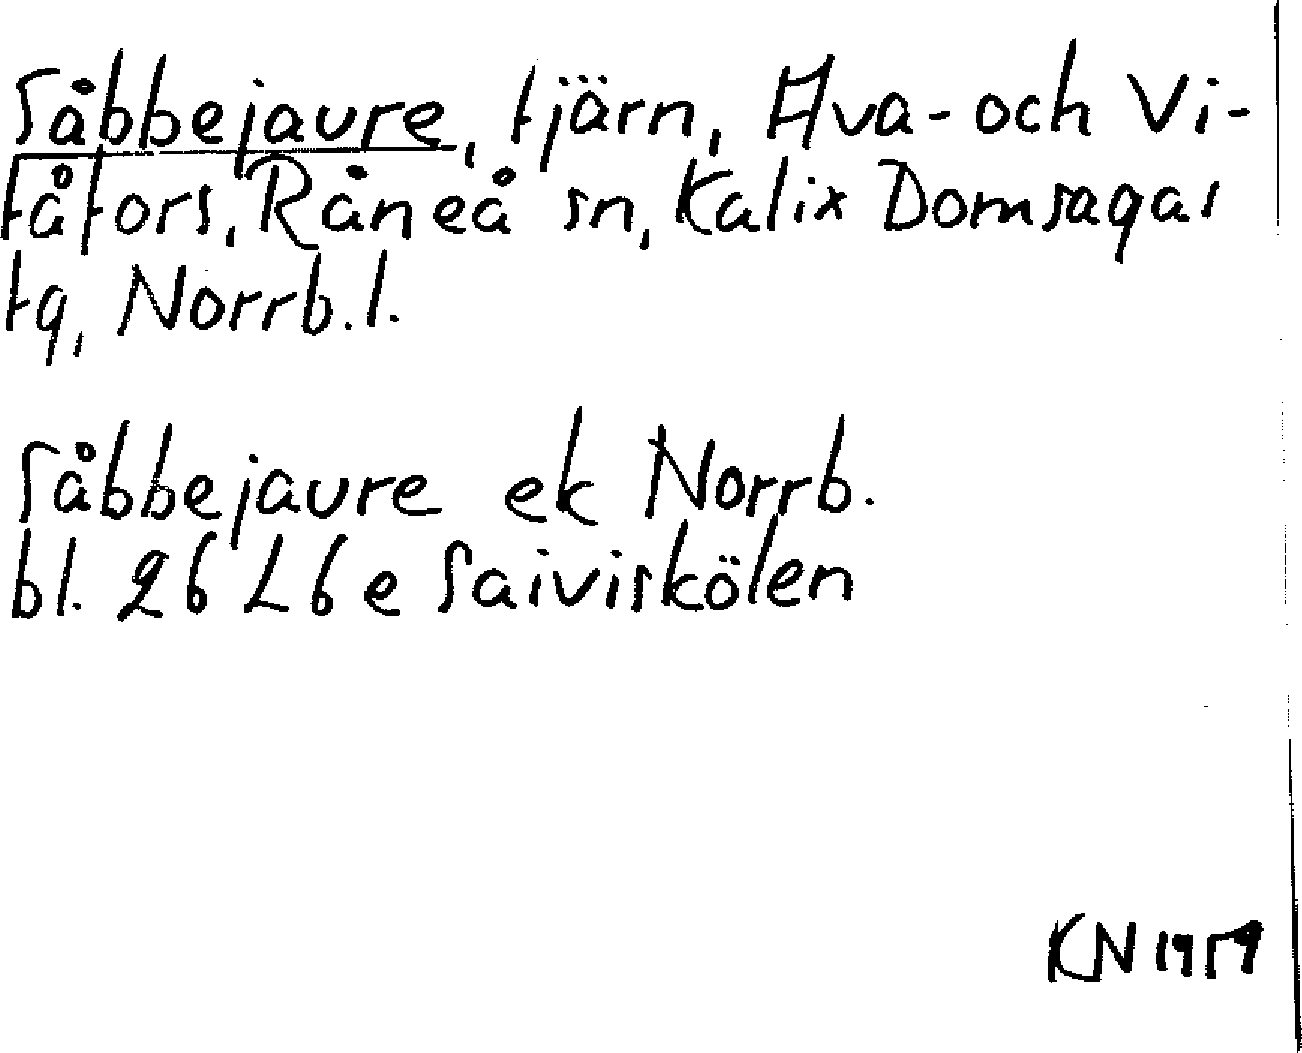 Såbbejaure, tjärn, Ava- och Vi-
tåfors, Råneå sn, Kalix Domsagas
tg, Norrb.l.
Såbbejaure ek Norrb.
bl. 26 L 6 e Saiviskölen
KN 1959